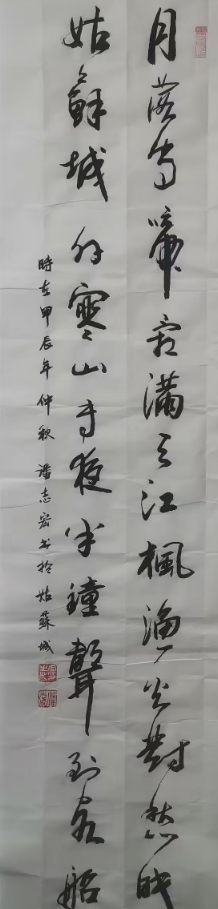 月落烏啼霜滿天江楓漁火對愁眠
姑蘇城外寒山寺夜半鐘聲到客船
時在甲辰年仲秋 潘志宏书於姑蘇城